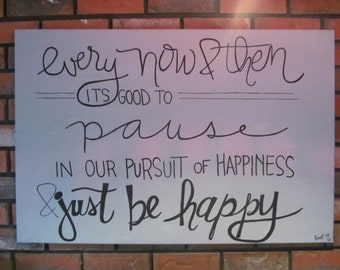 every now & then
ITS GOOD TO
pause
IN OUR PURSUIT OF HAPPINESS
& just be happy